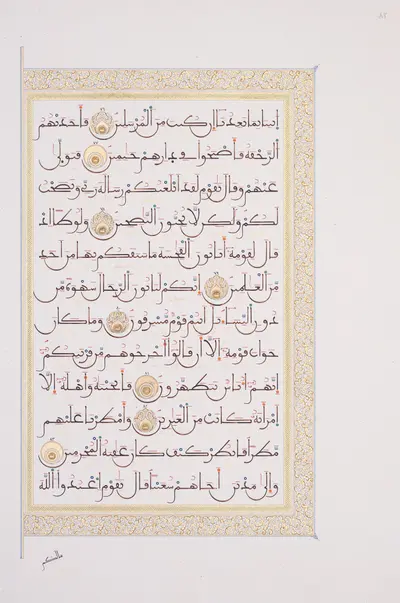 ايتنا بما تعدنا ان كنت من المرسلين فاخذتهم
الرجفة فاصبحوا في دارهم جثمين فتولى
عنهم وقال يقوم لقد ابلغتكم رسالة ربي ونصحت
لكم ولكن لا تحبون النصحين ولوطا اذ
قال لقومه اتاتون الفحشة ما سبقكم بها من احد
من العلمين انكم لتاتون الرجال شهوة من
دون النساء بل انتم قوم مسرفون وما كان
جواب قومه الا ان قالوا اخرجوهم من قريتكم
انهم اناس يتطهرون فانجينه واهله الا
امراته كانت من الغبرين وامطرنا عليهم
مطرا فانظر كيف كان عقبة المجرمين
والى مدين اخاهم شعيبا قال يقوم اعبدوا الله